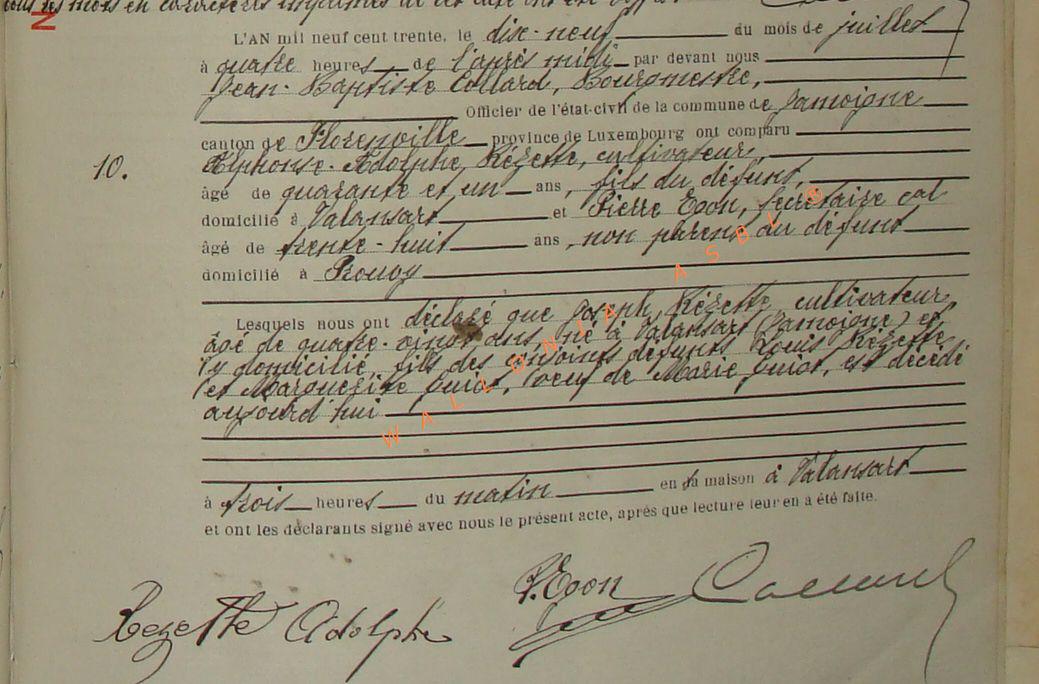 tous les mots en caractères imprimés de cet acte ont été
N
L'AN mil neuf cent trente, le dix-neuf du mois de juillet
à quatre heures de l'après midi par devant nous
Jean-Baptiste Collard, Bourgmestre,
Officier de l'état-civil de la commune de Jamoigne
canton de Florenville province de Luxembourg ont comparu
10.
Alphonse-Adolphe, Rézette, cultivateur,
âgé de quarante et un ans, fils du défunt,
domicilié à Valansart et Pierre Evon, secrétaire cal
âgé de trente-huit ans, non parent du défunt
domicilié à Prouvy
Lesquels nous ont déclaré que Joseph, Rézette, cultivateur,
âgé de quatre-vingt ans, né à Valansart (Jamoigne) et
y domicilié, fils des conjoints défunts Louis Rézette,
et Marguerite Guiot, veuf de Marie Guiot, est décédé
aujourd'hui
à trois heures du matin en sa maison à Valansart
et ont les déclarants signé avec nous le présent acte, après que lecture leur en a été faite.
Rezette Adolphe P. Evon Collard
WALLONIE ASBL ©